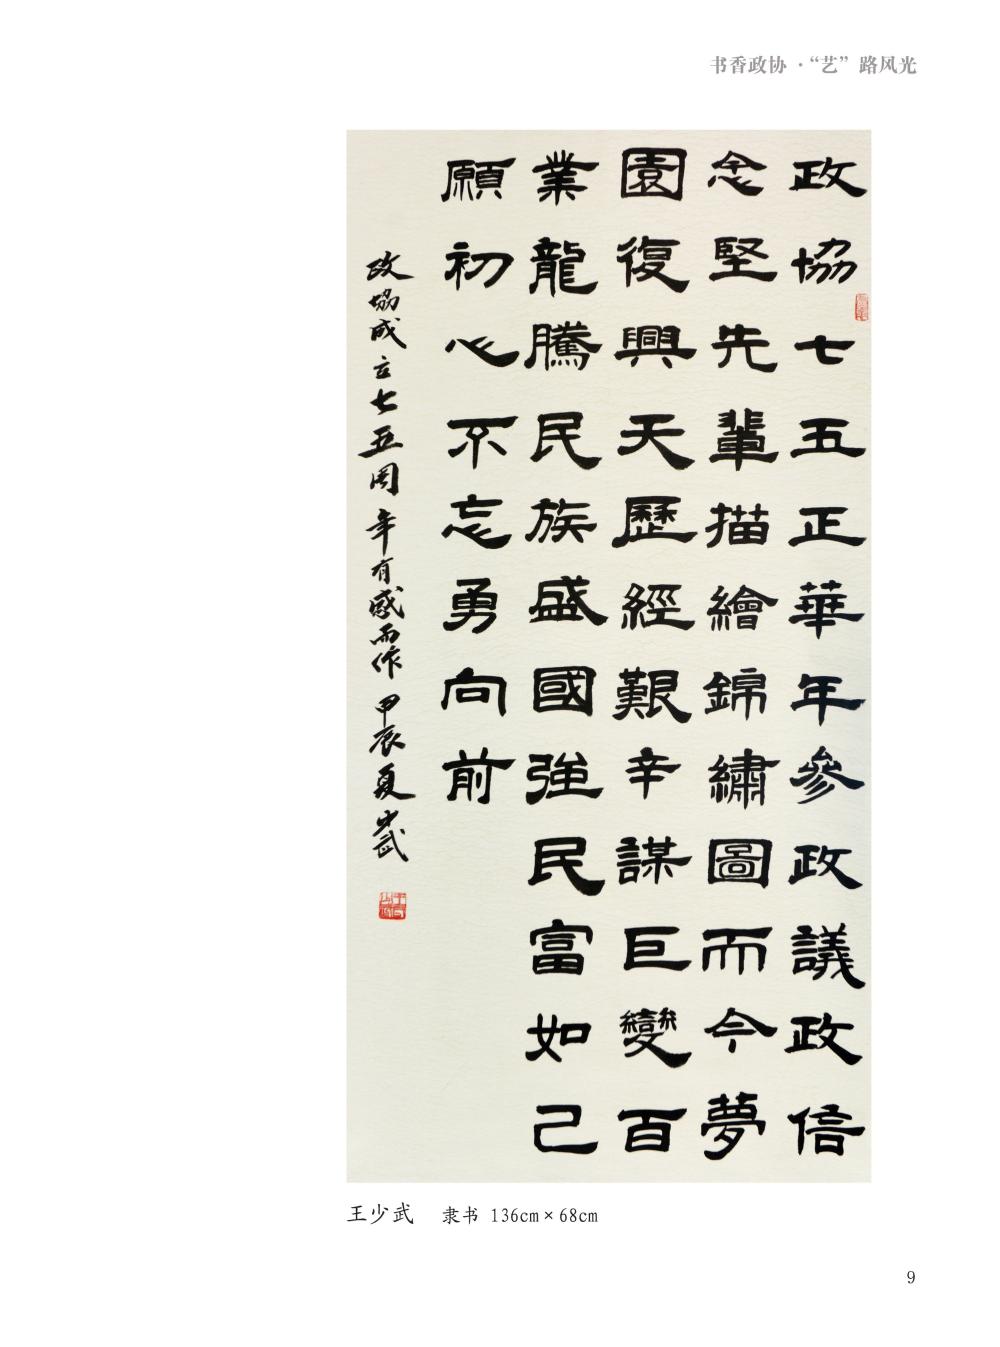 书香政协·“艺”路风光
政協七五正華年參政議政信
念堅先輩描繪錦繡圖而今夢
園復興天歷經艱辛謀巨變百
業龍騰民族盛國強民富如己
願初心不忘勇向前
政協成立七五周年有感而作甲辰夏少武
王少武 隶书 136cm×68cm
9